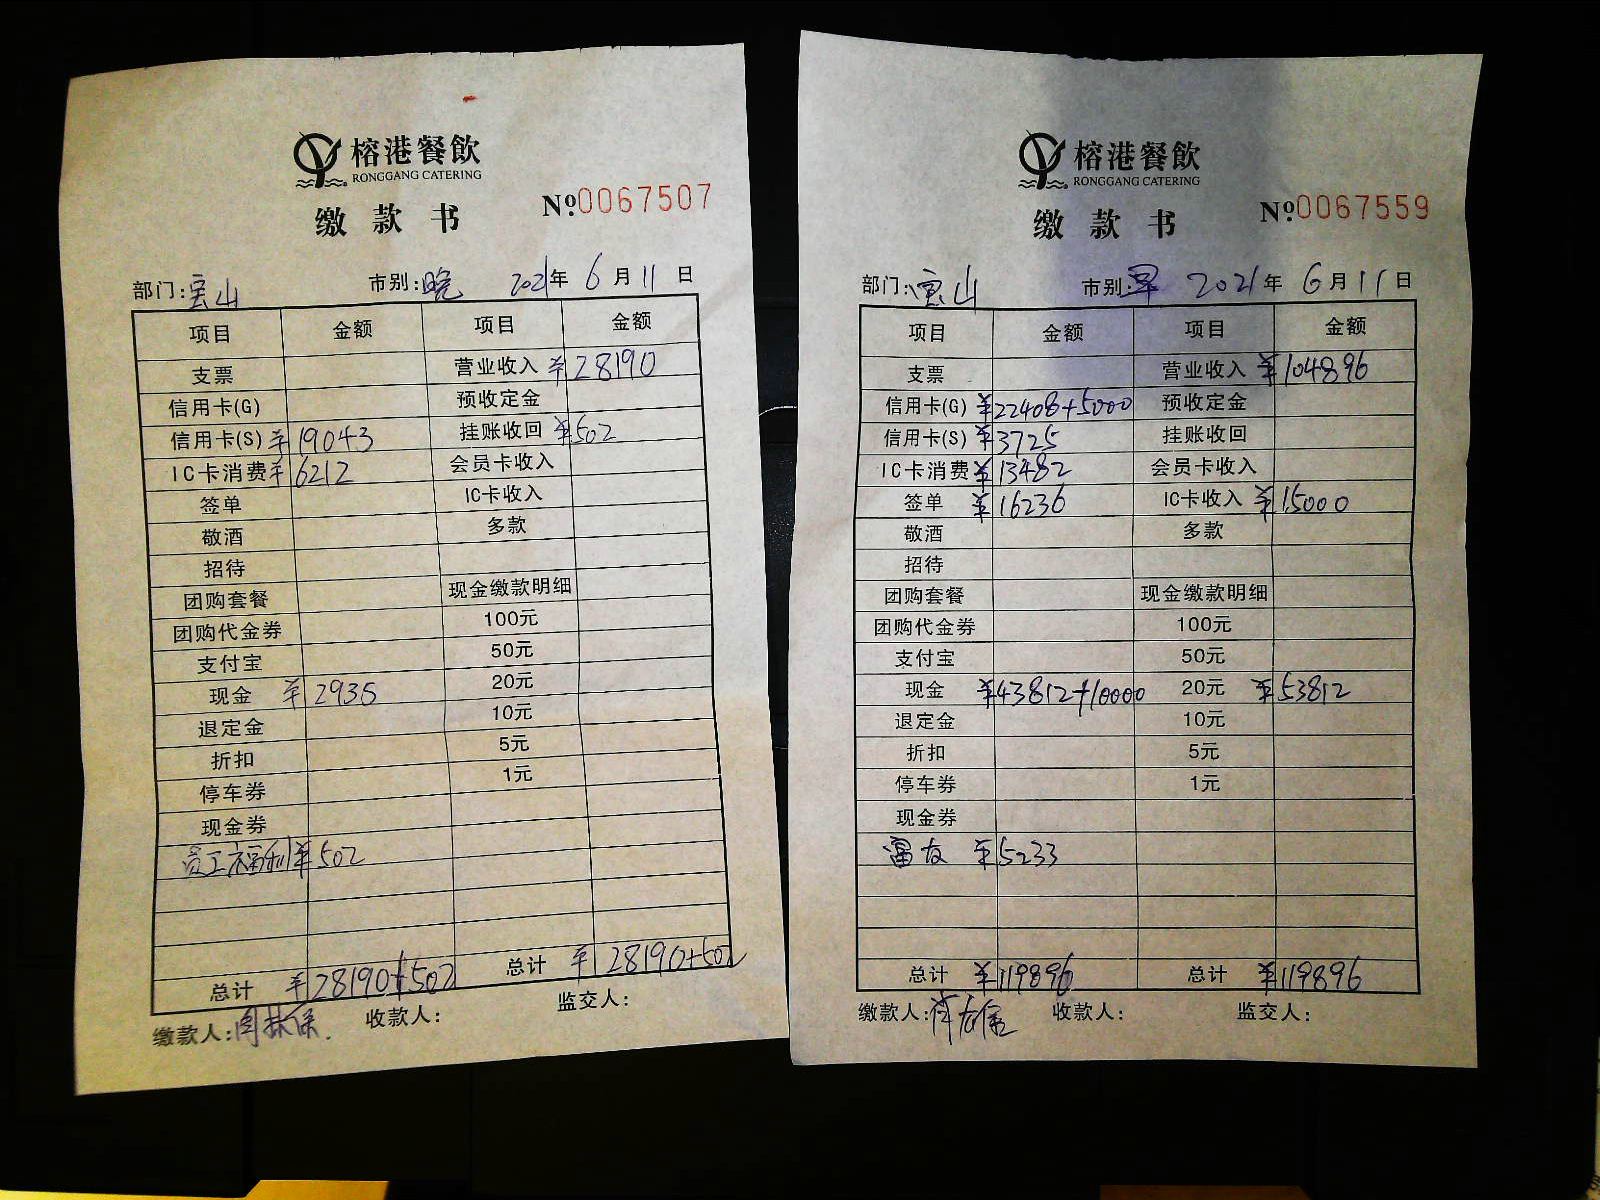 榕港餐飲
RONGGANG CATERING
缴款书
№.0067507
部门:宝山 市别:晚 2021年6月11日
项目 金额 项目 金额
支票 营业收入 ¥28190
信用卡(G) 预收定金
信用卡(S) ¥19043 挂账收回 ¥502
IC卡消费 ¥6212 会员卡收入
签单 IC卡收入
敬酒 多款
招待
团购套餐 现金缴款明细
团购代金券 100元
支付宝 50元
现金 ¥2935 20元
退定金 10元
折扣 5元
停车券 1元
现金券
员工福利 ¥502
总计 ¥28190+502 总计 ¥28190+502
缴款人: 收款人: 监交人:
榕港餐飲
RONGGANG CATERING
缴款书
№.0067559
部门:宝山 市别:早 2021年6月11日
项目 金额 项目 金额
支票 营业收入 ¥104896
信用卡(G) ¥22408+5000 预收定金
信用卡(S) ¥3725 挂账收回
IC卡消费 ¥13482 会员卡收入
签单 ¥16236 IC卡收入 ¥15000
敬酒 多款
招待
团购套餐 现金缴款明细
团购代金券 100元
支付宝 50元
现金 ¥43812+10000 20元 ¥53812
退定金 10元
折扣 5元
停车券 1元
现金券
富友 ¥5233
总计 ¥119896 总计 ¥119896
缴款人: 收款人: 监交人: